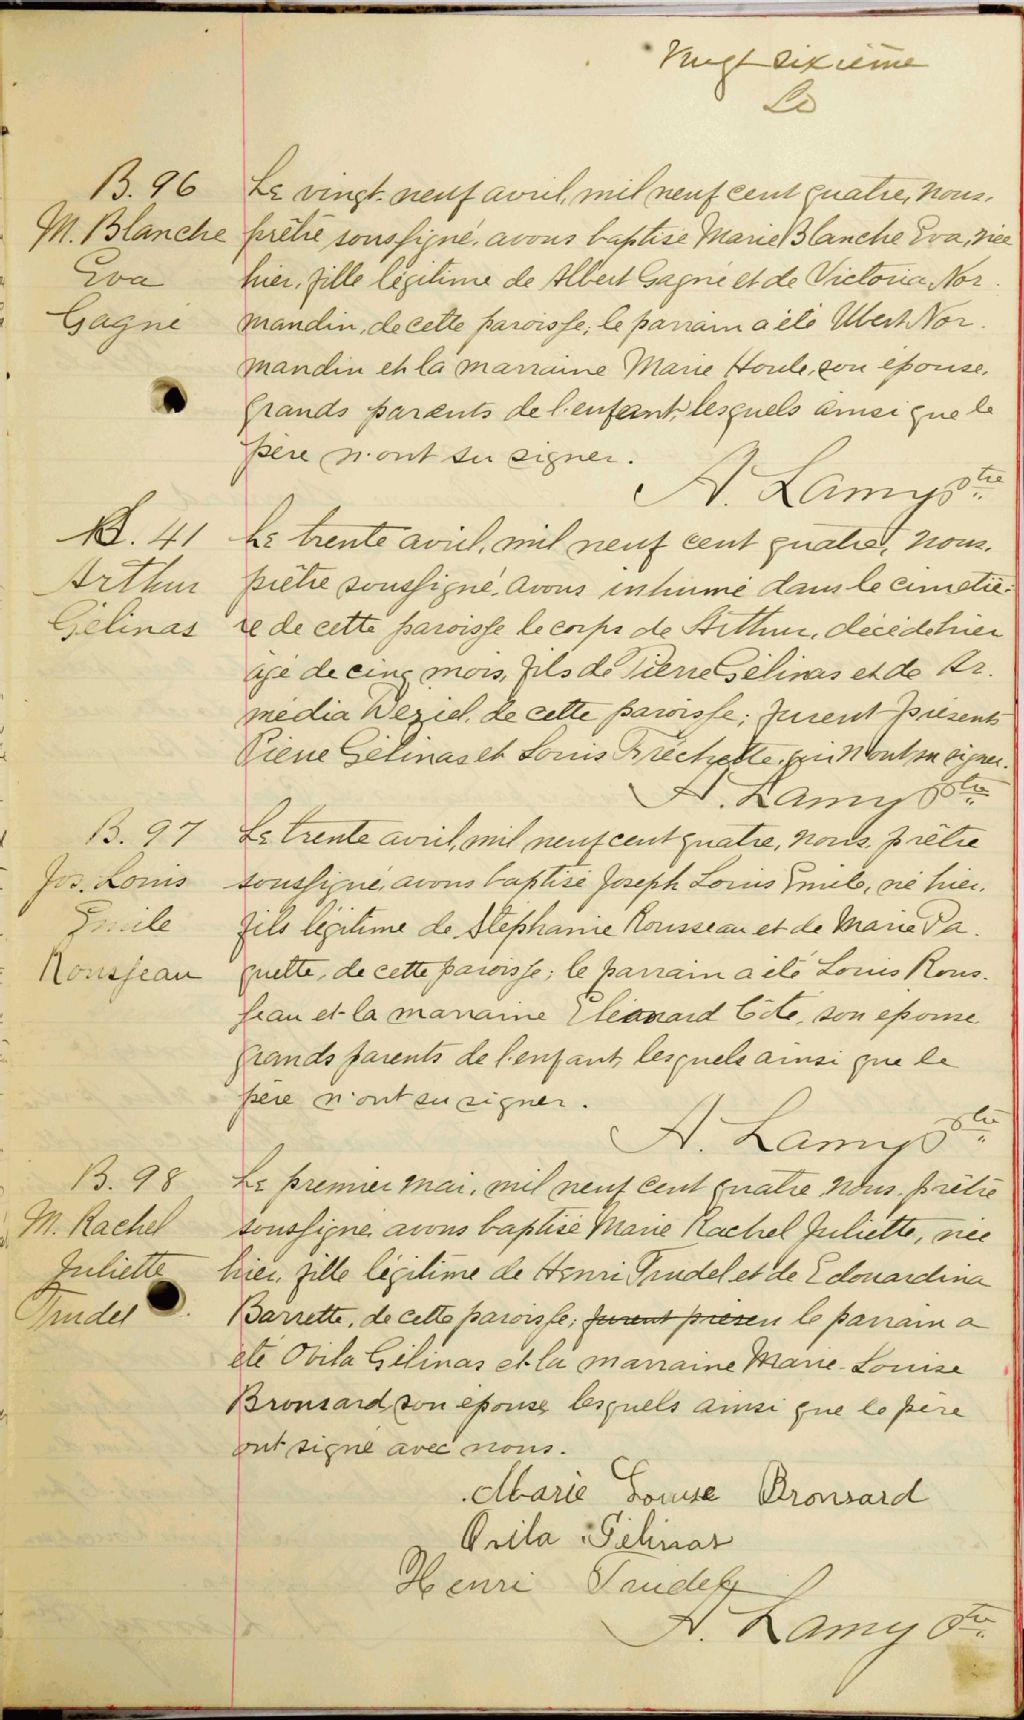 Vingt sixième
B. 96
M. Blanche
Eva
Gagné
Le vingt-neuf avril, mil neuf cent quatre, nous,
prêtre soussigné, avons baptisé Marie Blanche Eva, née
hier, fille légitime de Albert Gagné et de Victoria Nor
mandin, de cette paroisse; le parrain a été Ubert Nor
mandin et la marraine Marie Houle, son épouse,
grands parents de l'enfant, lesquels ainsi que le
père n'ont su signer.
A. Lamy ptre
S. 41
Arthur
Gélinas
Le trente avril, mil neuf cent quatre, nous,
prêtre soussigné, avons inhumé dans le cimetiè-
re de cette paroisse le corps de Arthur, décédé hier
âgé de cinq mois, fils de Pierre Gélinas et de Ar
média Déziel, de cette paroisse; furent présents
Pierre Gélinas et Louis Fréchette, qui n'ont su signer.
A. Lamy ptre
B. 97
Jos. Louis
Emile
Rousseau
Le trente avril, mil neuf cent quatre, nous, prêtre
soussigné, avons baptisé Joseph Louis Emile, né hier,
fils légitime de Stéphanie Rousseau et de Marie Pa
quette, de cette paroisse; le parrain a été Louis Rous
seau et la marraine Eléonard Côté, son épouse
grands parents de l'enfant, lesquels ainsi que le
père n'ont su signer.
A. Lamy ptre
B. 98
M. Rachel
Juliette
Trudel
Le premier mai, mil neuf cent quatre, nous, prêtre
soussigné, avons baptisé Marie Rachel Juliette, née
hier, fille légitime de Henri Trudel et de Edouardina
Barrette, de cette paroisse; furent présen le parrain a
été Ovila Gélinas et la marraine Marie-Louise
Bronsard, son épouse, lesquels ainsi que le père
ont signé avec nous.
Marie Louise Bronsard
Ovila Gélinas
Henri Trudel
A. Lamy ptre